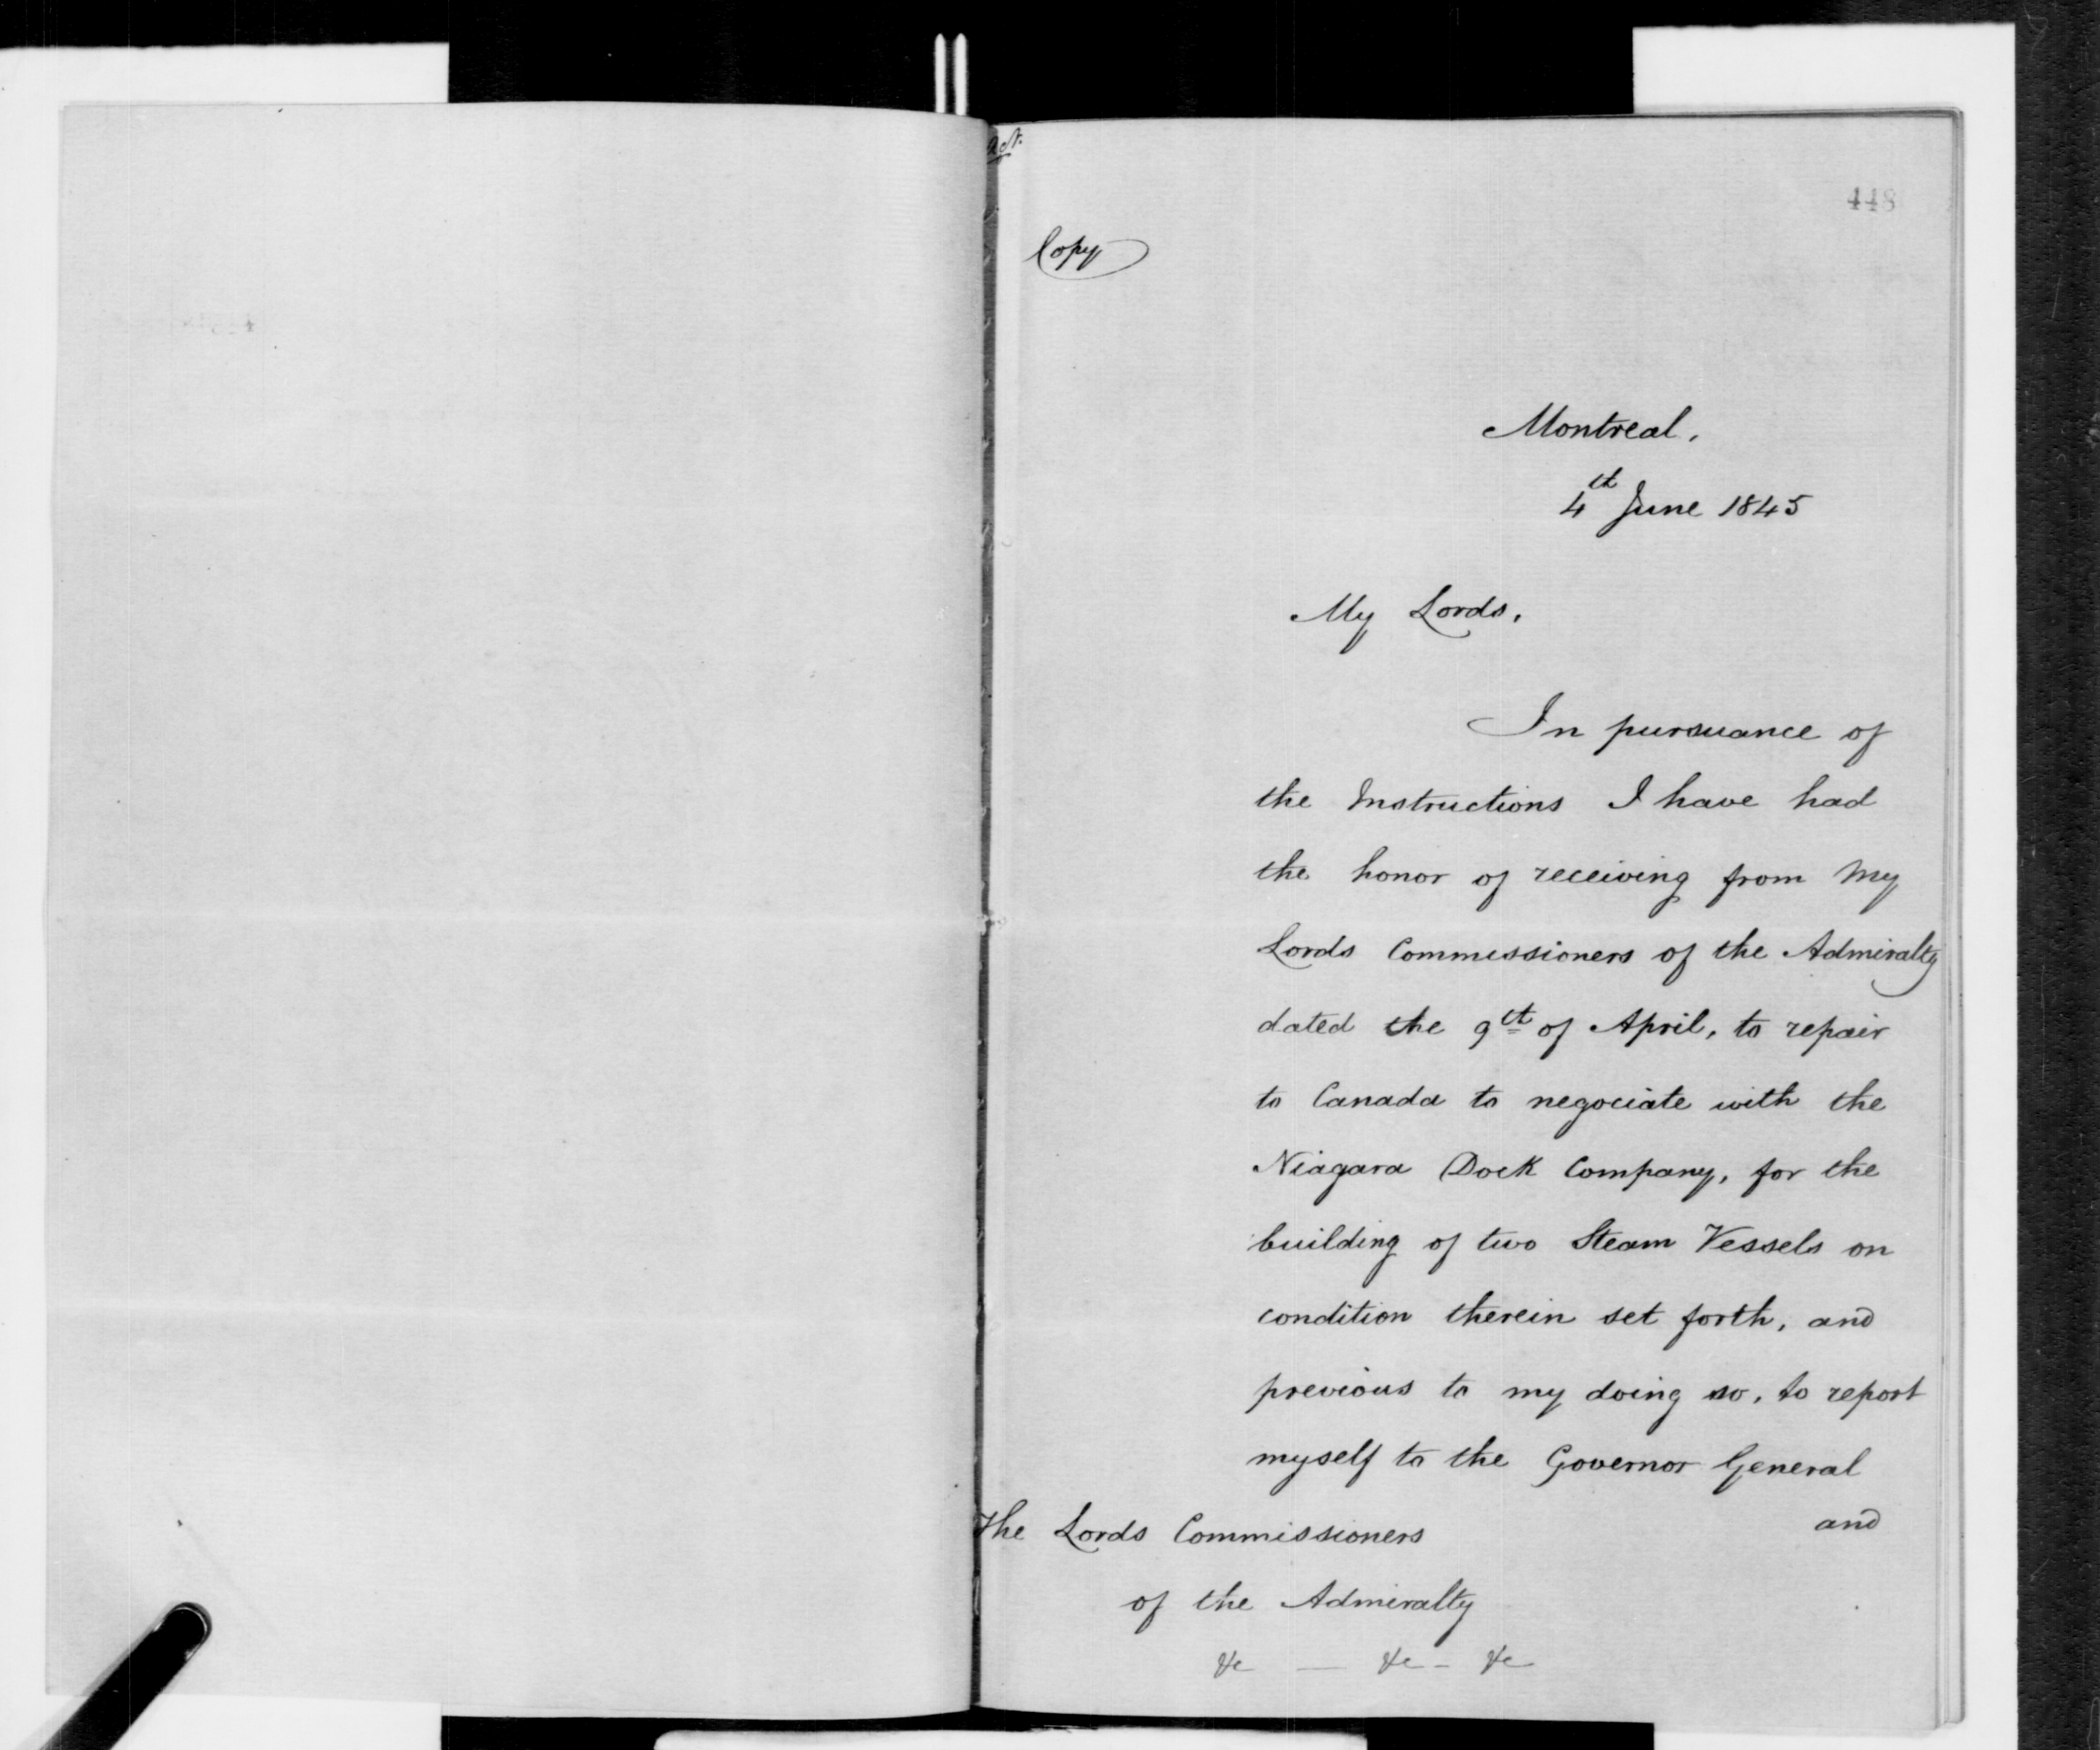 448
Copy
Montreal,
4th June 1845
My Lords,
In pursuance of
the Instructions I have had
the honor of receiving from My
Lords Commissioners of the Admiralty
dated the 9th of April, to repair
to Canada to negociate with the
Niagara Dock Company, for the
building of two Steam Vessels on
condition therein set forth, and
previous to my doing so, to report
myself to the Governor General
and
The Lords Commissioners
of the Admiralty
&c — &c - &c